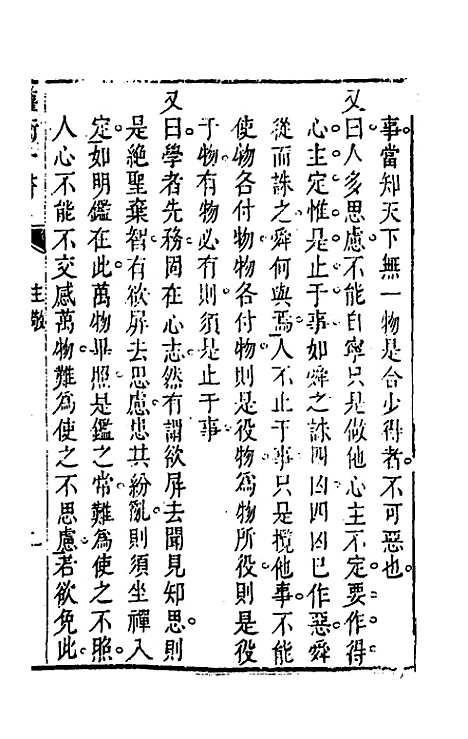 事當知天下無一物是合少得者不可惡也
又曰人多思慮不能自寧只是做他心主不定要作得
心主定惟是止于事如舜之誅四凶四凶巳作惡舜
從而誅之舜何與焉人不止于事只是攬他事不能
使物各付物物各付物則是役物為物所役則是役
于物有物必有則須是止于事
又曰學者先務固在心志然有謂欲屏去聞見知思則
是絶聖棄智有欲屏去思慮患其紛亂則須坐禪入
定如明鑑在此萬物畢照是鑑之常難為使之不照
人心不能不交感萬物難為使之不思慮若欲免此
主敬